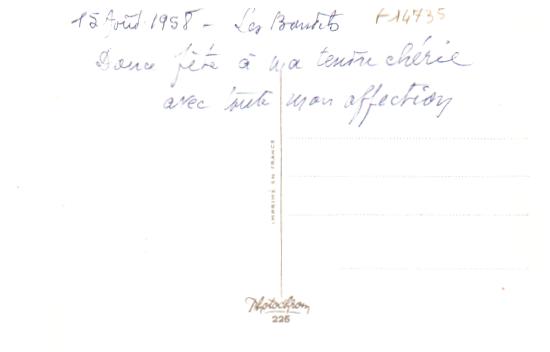 15 Août 1958 - Les
F14735
Douce fête à ma chérie
avec toute mon affection
IMPRIMÉ EN FRANCE
Photochrom
225